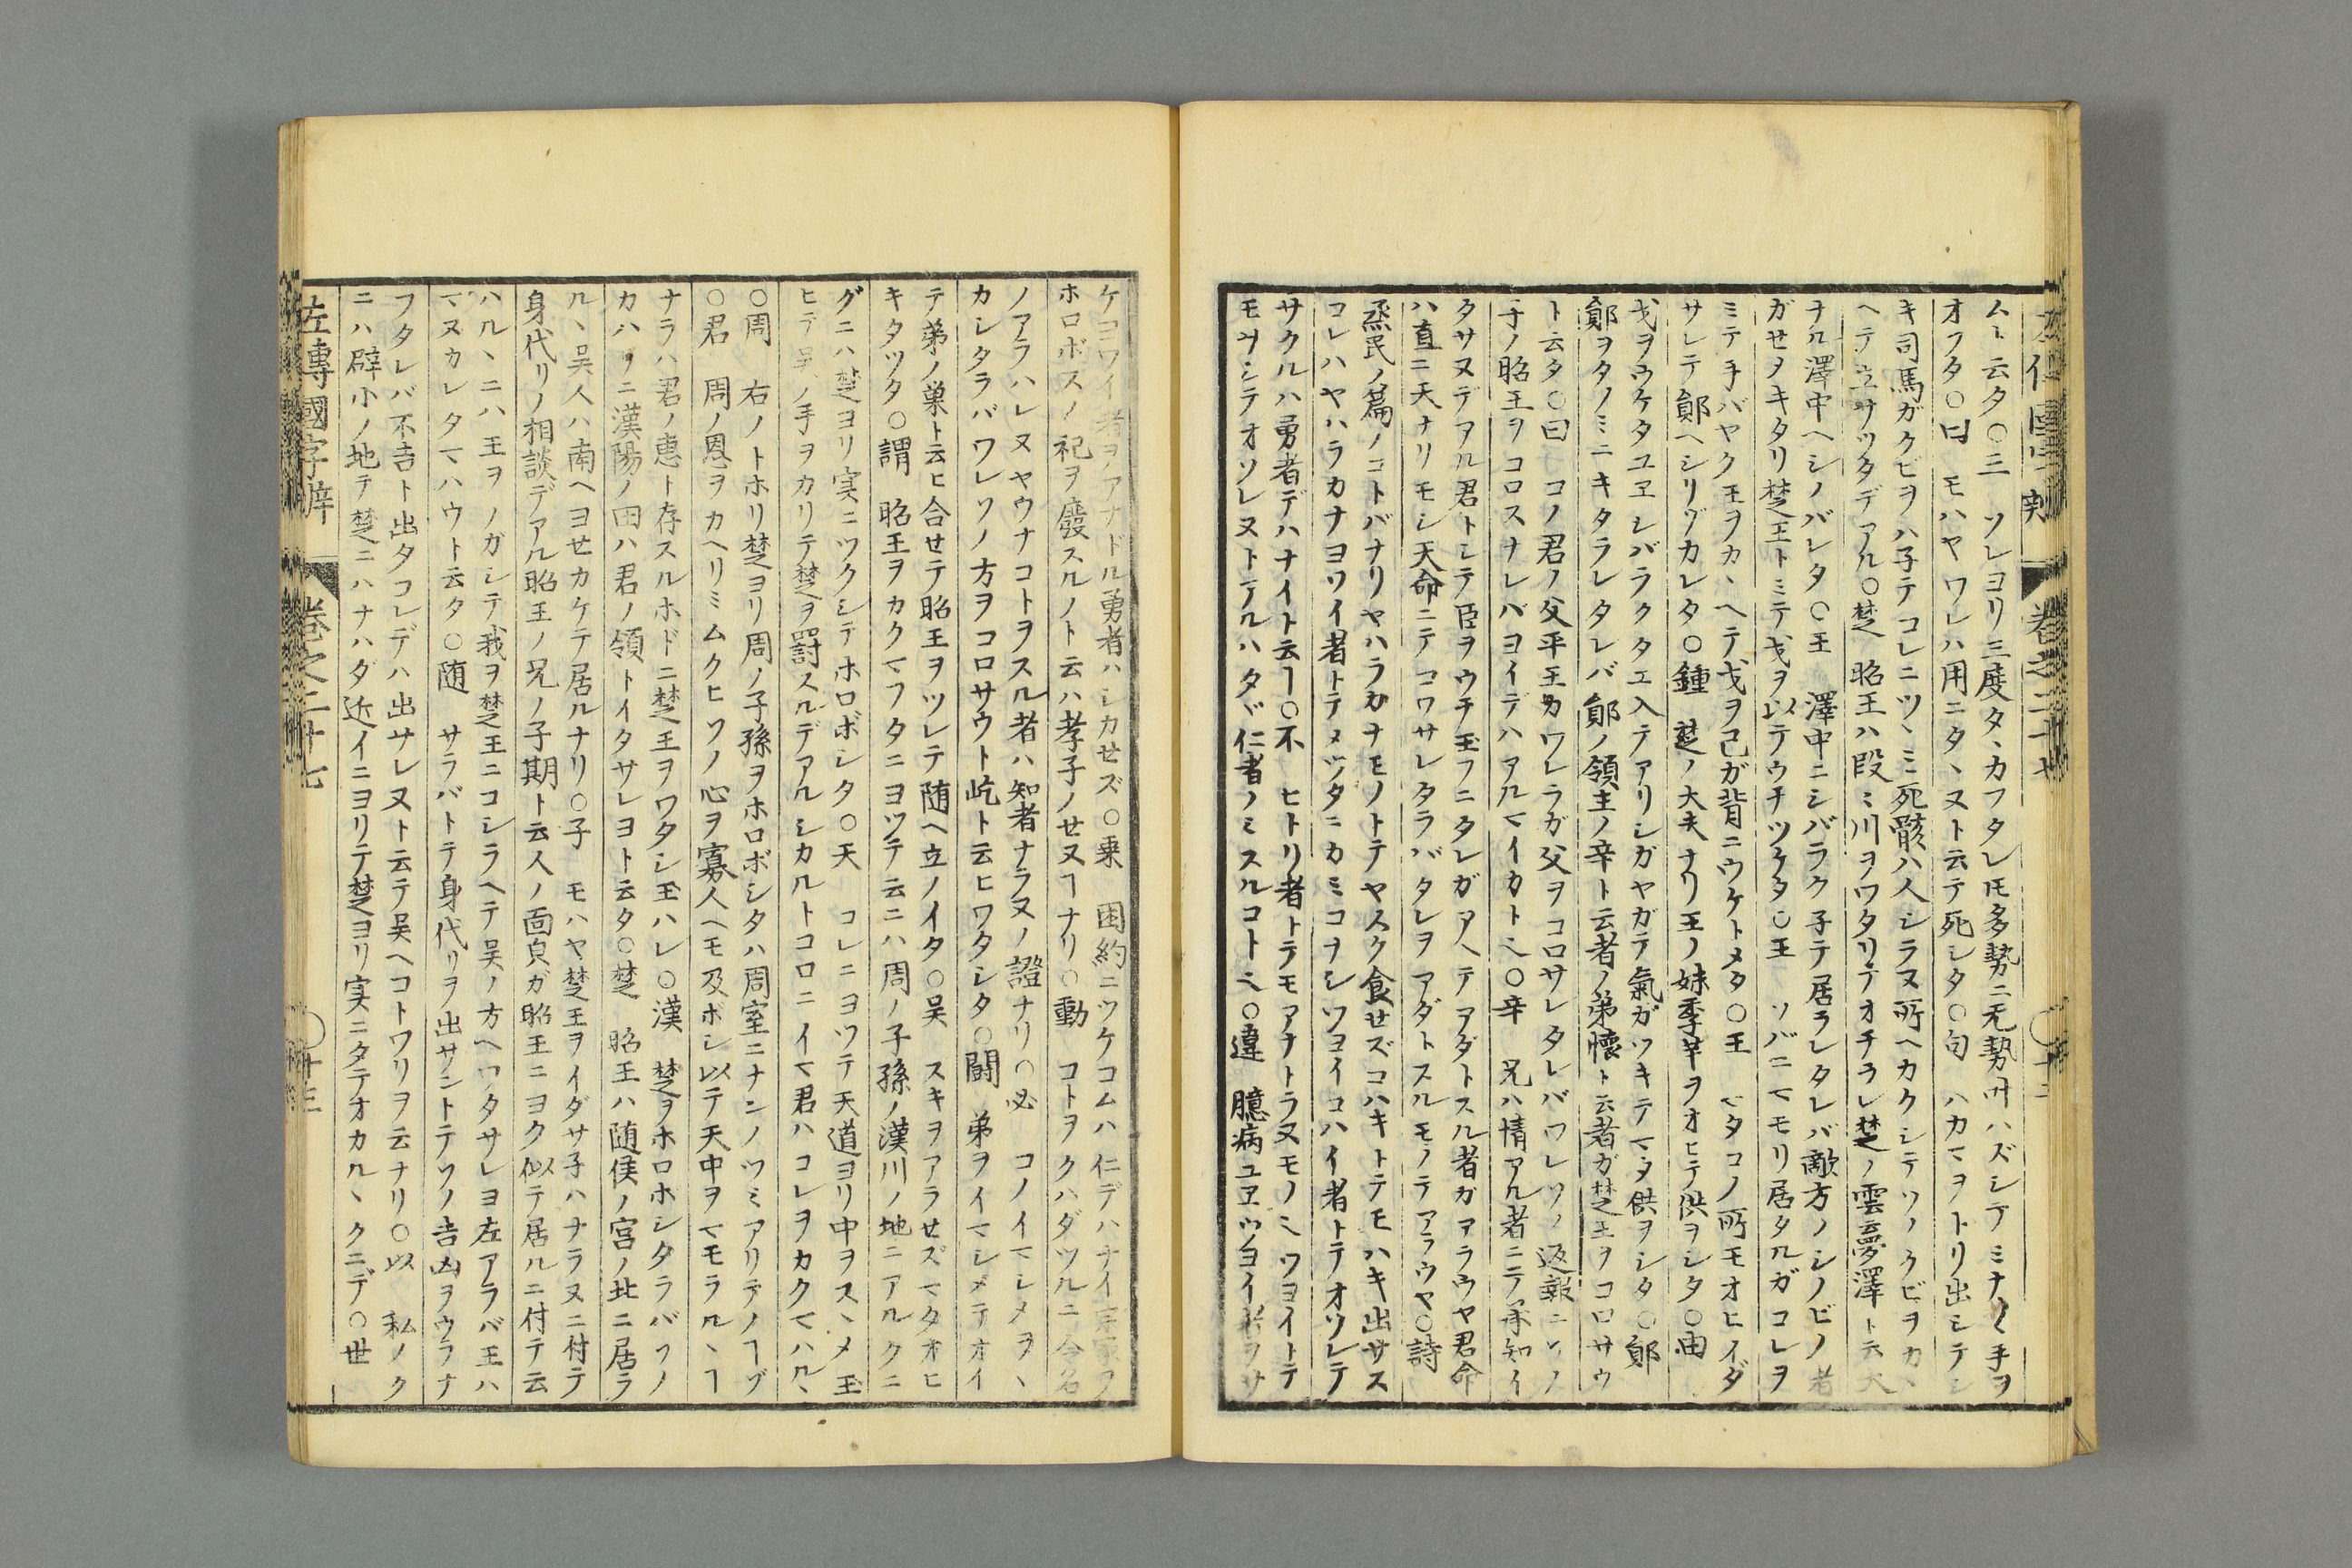 ムト云タ〇三 ソレヨリ三度タヽカフタレ𪜈多勢ニ无勢叶ハズシテミナ〱手ヲ
オフタ〇曰 モハヤワレハ用ニタヽヌト云テ死シタ〇句 ハカマヲトリ出シテシ
キ司馬ガクビヲハ子テコレニツヽミ死骸ハ人シラヌ所ヘカクシテソノクビヲカヽ
ヘテ立サツタデアル〇楚 昭王ハ段ミ川ヲワタリテオチラレ楚ノ雲夢澤ト云大
ナル澤中ヘシノバレタ〇王 澤中ニシバラク子テ居ラレタレバ敵方ノシノビノ者
ガせメキタリ楚王トミテ戈ヲ以テウチツケタ〇王 ソバニマモリ居タルガコレヲ
ミテ手バヤク王ヲカヽヘテ戈ヲ己ガ背ニウケトメタ〇王 マタコノ所モオヒイダ
サレテ鄖ヘシリゾカレタ〇鍾 楚ノ大夫ナリ王ノ妹季羋ヲオヒテ供ヲシタ〇由
戈ヲウケタユヱシバラクタエ入テアリシガヤガテ氣ガツキテマタ供ヲシタ〇鄖
鄖ヲタノミニキタラレタレバ鄖ノ領主ノ辛ト云者ノ弟懷ト云者ガ楚王ヲコロサウ
ト云タ〇曰 コノ君ノ父平王カワレラガ父ヲコロサレタレバワレソノ返報ニソノ
子ノ昭王ヲコロスナレバヨイデハアルマイカトヘ〇辛 兄ハ情アル者ニテ承知イ
タサヌデアル君トシテ臣ヲウチ玉フニタレガアヘテアダトスル者ガアラウヤ君命
ハ直ニ天ナリモシ天命ニテコワサレタラバタレヲアダトスルモノテアラウヤ〇詩
烝民ノ篇ノコトバナリヤハラカナモノトテヤスク食せズコハキトテモハキ出サス
コレハヤハラカナヨワイ者トテメツタニカミコヲシツヨイコハイ者トテオソレテ
サクルハ勇者デハナイト云ヿ〇不 ヒトリ者トテモアナトラヌモノヘツヨイトテ
モヰシテオソレヌトテルハタヾ仁者ノミスルコトヘ〇違 臆病ユヱツヨイ者ヲサ
ケヨワイ者ヲアナドル勇者ハシカせズ〇乗 困約ニツケコムハ仁デハナイ宗家ヲ
ホロボスノ祀ヲ廢スルノト云ハ孝子ノせヌヿナリ〇動 コトヲクハダツルニ令名
ノアラハレヌヤウナコトヲスル者ハ知者ナラヌノ證ナリ〇必 コノイマシメヲヽ
カシタラバワレソノ方ヲコロサウト屹ト云ヒワタシタ〇鬪 弟ヲイマシメテオイ
テ弟ノ巣ト云ヒ合せテ昭王ヲツレテ随ヘ立ノイタ〇吴 スキヲアラせズマタオヒ
キタツタ〇謂 昭王ヲカクマフタニヨツテ云ニハ周ノ子孫ノ漢川ノ地ニアルクニ
グニハ楚ヨリ実ニツクシテホロボシタ〇天 コレニヨツテ天道ヨリ中ヲスヽメ玉
ヒテ吴ノ手ヲカリテ楚ヲ罰スルデアルシカルトコロニイマ君ハコレヲカクマハルヽ
〇周 右ノトホリ楚ヨリ周ノ子孫ヲホロボシタハ周室ニナンノツミアリテノヿゾ
〇君 周ノ恩ヲカヘリミムクヒソノ心ヲ寡人ヘモ及ボシ以テ天中ヲマモラルヽヿ
ナラハ君ノ惠ト存スルホドニ楚王ヲワタシ玉ハレ〇漢 楚ヲホロホシタラバソノ
カハリニ漢陽ノ田ハ君ノ領トイタサレヨト云タ〇楚 昭王ハ随侯ノ宮ノ北ニ居ラ
ルヽ吴人ハ南ヘヨせカケテ居ルナリ〇子 モハヤ楚王ヲイダサ子ハナラヌニ付テ
身代リノ相談デアル昭王ノ兄ノ子期ト云人ノ面皃ガ昭王ニヨク似テ居ルニ付テ云
ハルヽニハ王ヲノガシテ我ヲ楚王ニコシラヘテ吴ノ方ヘワタサレヨ左アラバ王ハ
マヌカレタマハウト云タ〇随 サラバトテ身代リヲ出サントテソノ吉凶ヲウラナ
フタレバ不吉ト出タコレデハ出サレヌト云テ吴ヘコトワリヲ云ナリ〇以 私ノク
ニハ辟小ノ地テ楚ニハナハダ近イニヨリテ楚ヨリ実ニタテオカルヽクニデ〇世
左傳國字辨 卷之二十七 〇十三